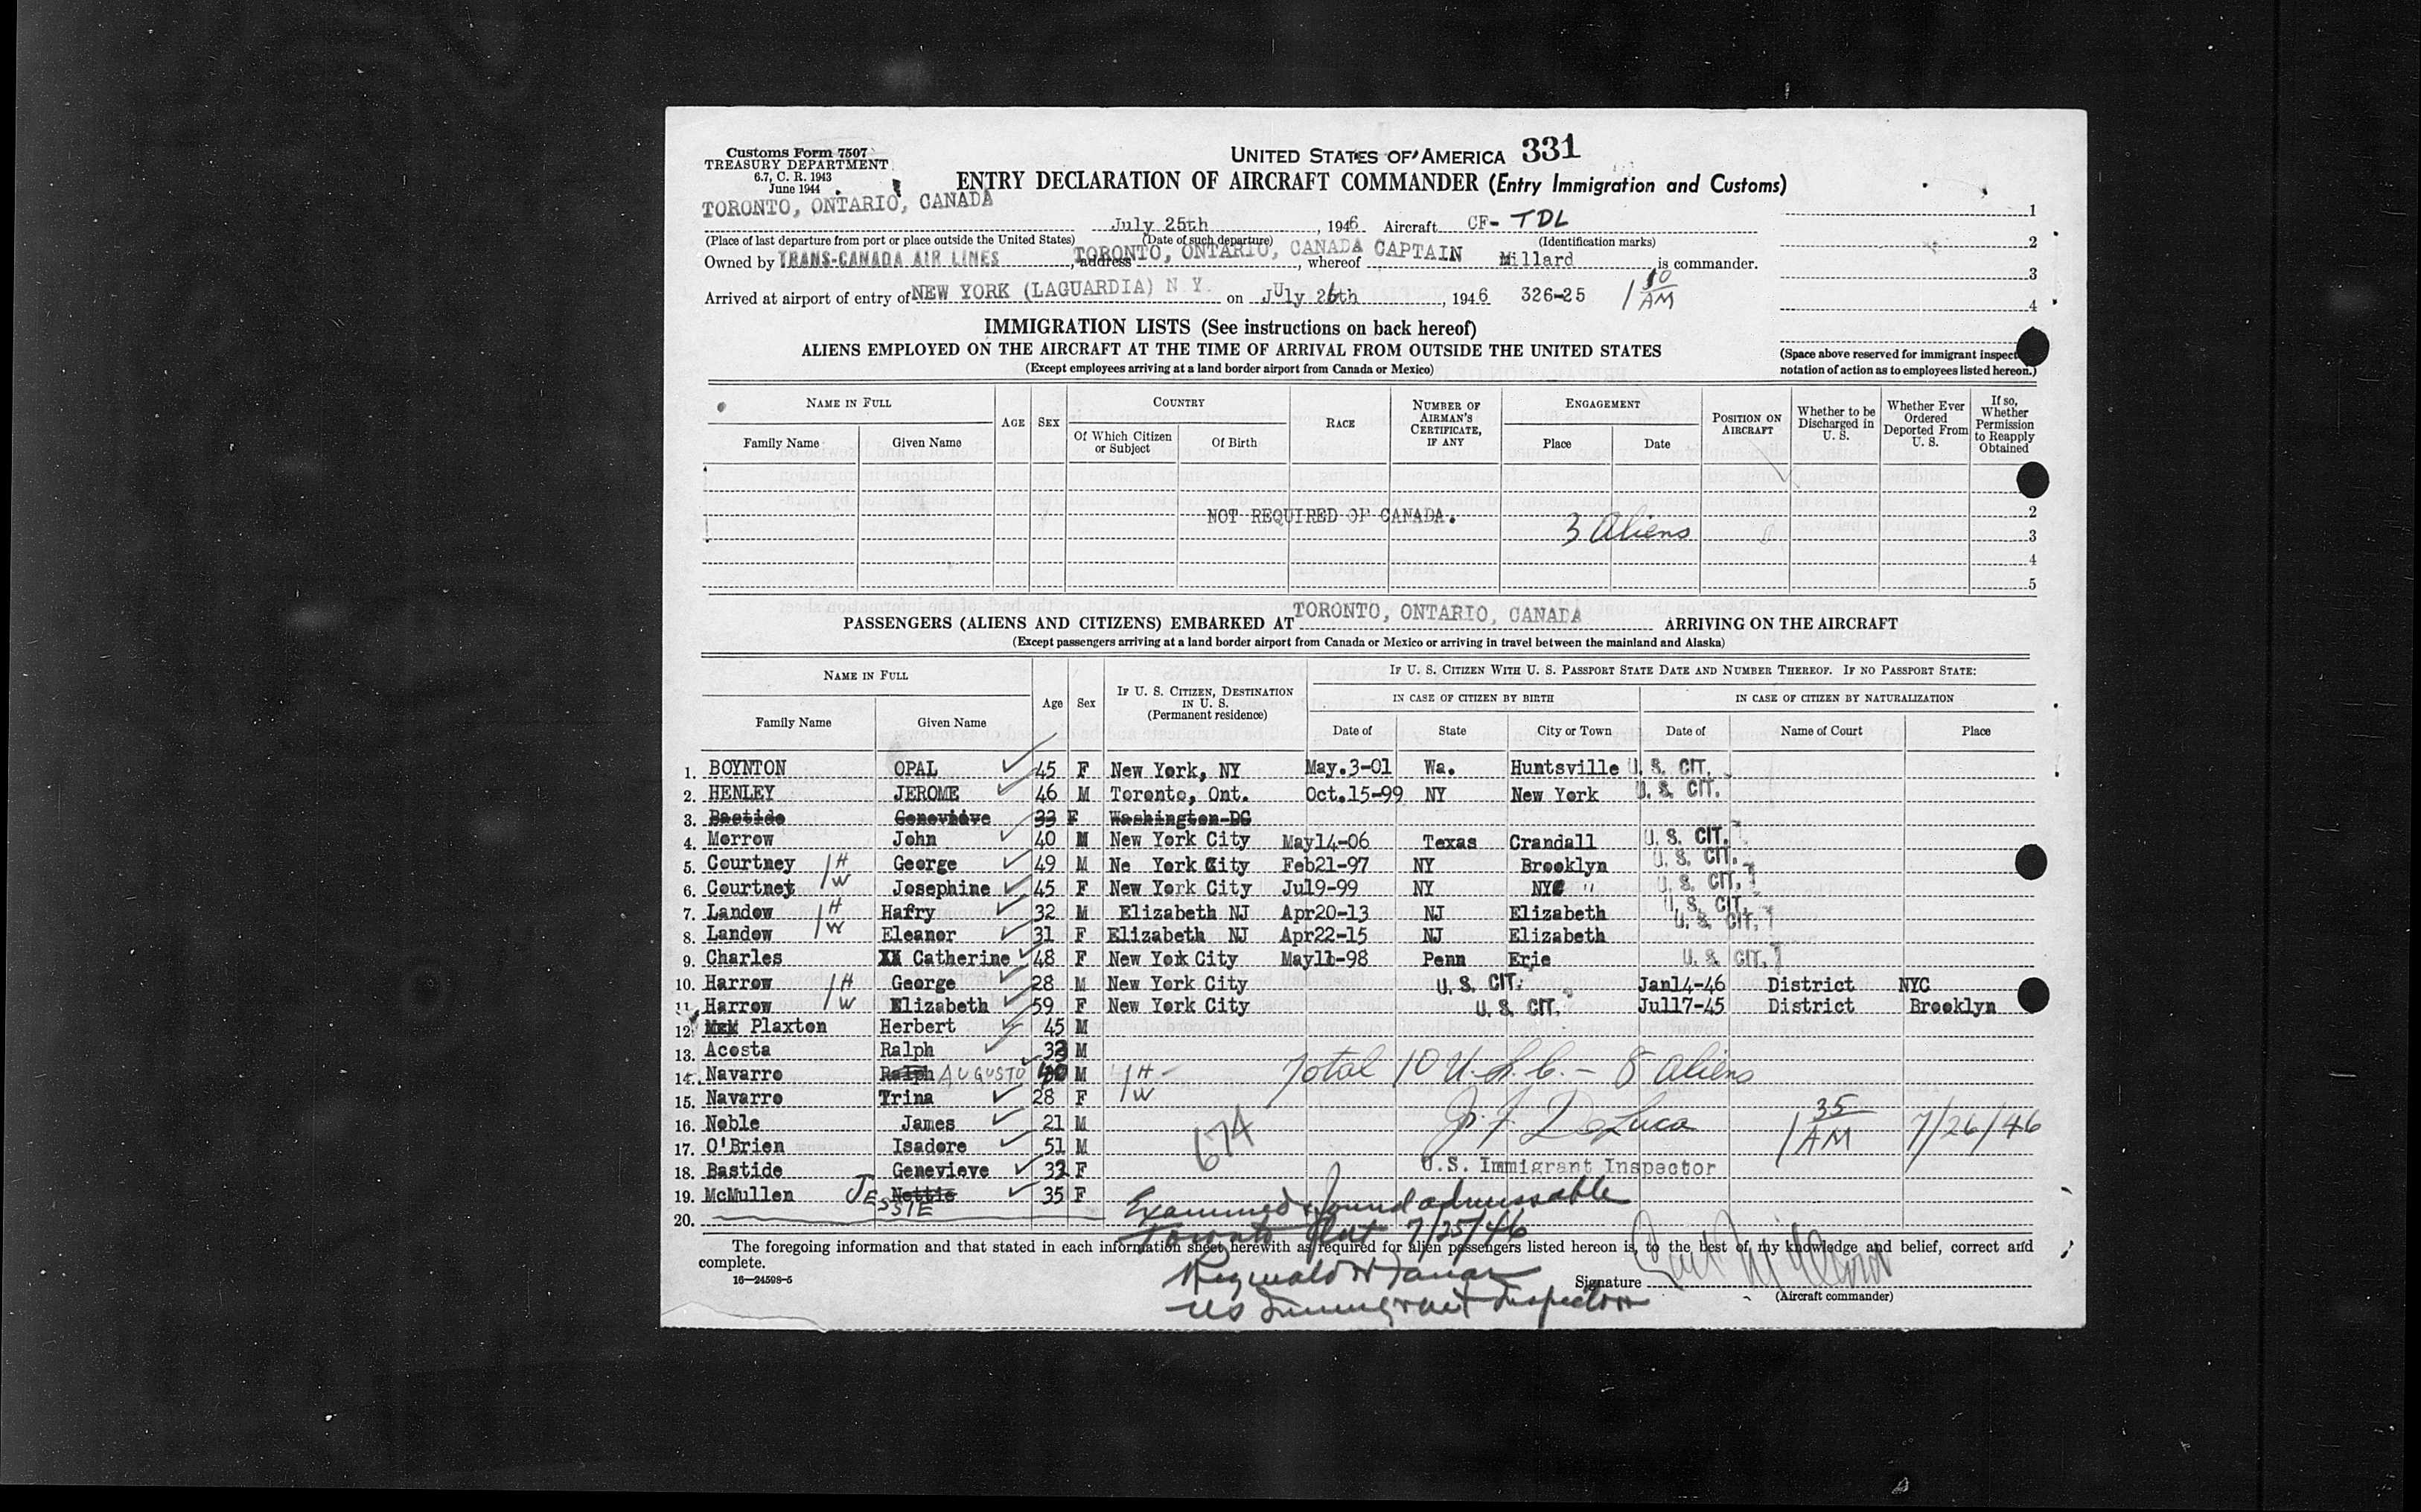 Customs Form 7507
TREASURY DEPARTMENT
6.7, C. R. 1943
June 1944
UNITED STATES OF AMERICA 331
ENTRY DECLARATION OF AIRCRAFT COMMANDER (Entry Immigration and Customs)
TORONTO, ONTARIO, CANADA July 25th, 1946 Aircraft CF- TDL 1
(Place of last departure from port or place outside the United States) (Date of such departure) (Identification marks) 2
Owned by TRANS-CANADA AIR LINES, address TORONTO, ONTARIO, CANADA, whereof CAPTAIN Millard is commander. 3
Arrived at airport of entry of NEW YORK (LAGUARDIA) N Y. on JUly 26th, 1946 326-25 1 10 AM 4
IMMIGRATION LISTS (See instructions on back hereof)
ALIENS EMPLOYED ON THE AIRCRAFT AT THE TIME OF ARRIVAL FROM OUTSIDE THE UNITED STATES
(Except employees arriving at a land border airport from Canada or Mexico)
(Space above reserved for immigrant inspect
notation of action as to employees listed hereon.)
NAME IN FULL AGE SEX COUNTRY RACE NUMBER OF AIRMAN'S CERTIFICATE, IF ANY ENGAGEMENT POSITION ON AIRCRAFT Whether to be Discharged in U. S. Whether Ever Ordered Deported From U. S. If so, Whether Permission to Reapply Obtained
Family Name Given Name Of Which Citizen or Subject Of Birth Place Date
NOT REQUIRED OF CANADA. 2
3 Aliens 3
4
5
PASSENGERS (ALIENS AND CITIZENS) EMBARKED AT TORONTO, ONTARIO, CANADA ARRIVING ON THE AIRCRAFT
(Except passengers arriving at a land border airport from Canada or Mexico or arriving in travel between the mainland and Alaska)
NAME IN FULL Age Sex IF U. S. CITIZEN, DESTINATION IN U. S. (Permanent residence) IF U. S. CITIZEN WITH U. S. PASSPORT STATE DATE AND NUMBER THEREOF. IF NO PASSPORT STATE:
IN CASE OF CITIZEN BY BIRTH IN CASE OF CITIZEN BY NATURALIZATION
Family Name Given Name Date of State City or Town Date of Name of Court Place
1. BOYNTON OPAL 45 F New York, NY May.3-01 Wa. Huntsville U. S. CIT.
2. HENLEY JEROME 46 M Toronto, Ont. Oct.15-99 NY New York U. S. CIT.
3. Bastide Genevieve 33 F Washington-DC
4. Morrow John 40 M New York City May14-06 Texas Crandall U. S. CIT.
5. Courtney H George 49 M Ne York City Feb21-97 NY Brooklyn U. S. CIT.
6. Courtney W Josephine 45 F New York City Jul9-99 NY NYC " U. S. CIT.
7. Landow H Harry 32 M Elizabeth NJ Apr20-13 NJ Elizabeth U. S. CIT.
8. Landow W Eleanor 31 F Elizabeth NJ Apr22-15 NJ Elizabeth U. S. CIT.
9. Charles Catherine 48 F New York City May11-98 Penn Erie U. S. CIT.
10. Harrow H George 28 M New York City U. S. CIT. Jan14-46 District NYC
11. Harrow W Elizabeth 59 F New York City U. S. CIT. Jul17-45 District Brooklyn
12. Plaxton Herbert 45 M
13. Acosta Ralph 33 M
14. Navarro Ralph AUGUSTO 40 M H Total 10 U.S.C. - 8 aliens
15. Navarro Trina 28 F W
16. Noble James 21 M J. F. DeLuca 1 35 AM 7/26/46
17. O'Brien Isadore 51 M 674
18. Bastide Genevieve 33 F U.S. Immigrant Inspector
19. McMullen Nettie JESSIE 35 F Examined & found admissable
20. Toronto 7/25/46
The foregoing information and that stated in each information sheet herewith as required for alien passengers listed hereon is, to the best of my knowledge and belief, correct and
complete.
16—24598-5
Reginald H
US Immigrant Inspector
Signature Millard
(Aircraft commander)